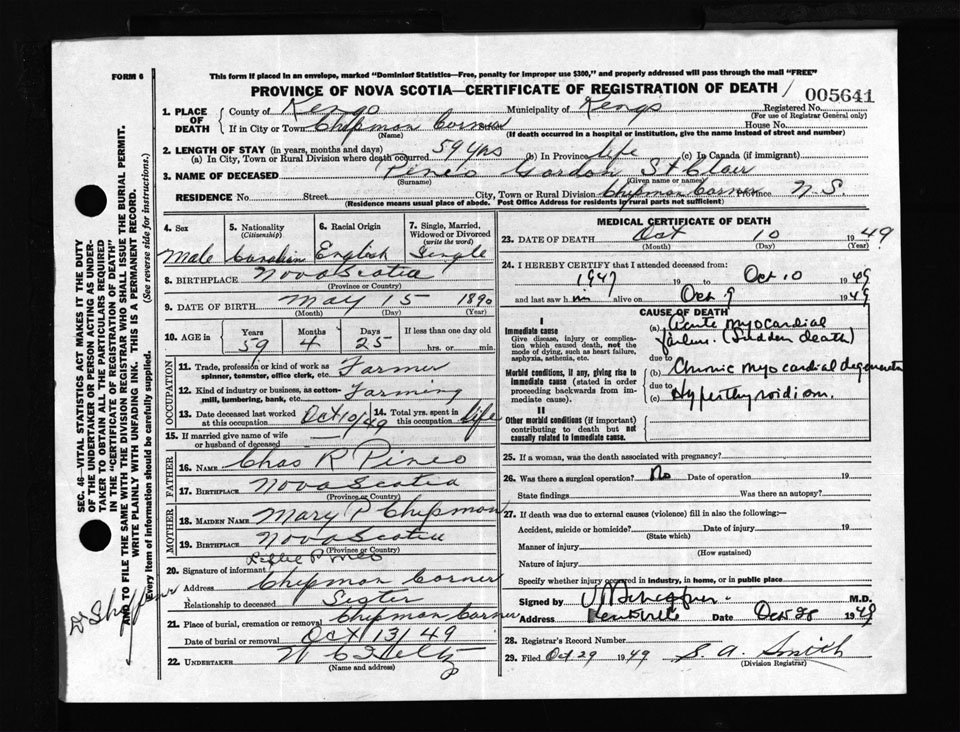 FORM 6
This form if placed in an envelope, marked "Dominion Statistics—Free, penalty for improper use $300," and properly addressed will pass through the mail "FREE"
PROVINCE OF NOVA SCOTIA—CERTIFICATE OF REGISTRATION OF DEATH
005641
1. PLACE OF DEATH
County of Kings Municipality of Kings Registered No.
(For use of Registrar General only)
If in City or Town Chipman Corner House No.
(Name) (If death occurred in a hospital or institution, give the name instead of street and number)
2. LENGTH OF STAY (in years, months and days)
(a) In City, Town or Rural Division where death occurred 59 yrs (b) In Province life (c) In Canada (if immigrant)
3. NAME OF DECEASED Pineo Gordon St Clair
(Surname) (Given name or names)
RESIDENCE No. Street City, Town or Rural Division Chipman Corner Province N.S.
(Residence means usual place of abode. Post Office Address for residents in rural parts not sufficient)
4. Sex 5. Nationality (Citizenship) 6. Racial Origin 7. Single, Married, Widowed or Divorced (write the word)
Male Canadian English Single
8. BIRTHPLACE Nova Scotia
(Province or Country)
9. DATE OF BIRTH May 15 1890
(Month) (Day) (Year)
10. AGE in Years Months Days If less than one day old
59 4 25 hrs. or min.
OCCUPATION
11. Trade, profession or kind of work as spinner, teamster, office clerk, etc. Farmer
12. Kind of industry or business, as cotton-mill, lumbering, bank, etc. Farming
13. Date deceased last worked at this occupation Oct 10/49 14. Total yrs. spent in this occupation life
15. If married give name of wife or husband of deceased
FATHER
16. NAME Chas R Pineo
17. BIRTHPLACE Nova Scotia
(Province or Country)
MOTHER
18. MAIDEN NAME Mary P Chipman
19. BIRTHPLACE Nova Scotia
(Province or Country)
20. Signature of informant Pineo
Address Chipman Corner
Relationship to deceased Sister
21. Place of burial, cremation or removal Chipman Corner
Date of burial or removal Oct 13/49
22. UNDERTAKER W C
(Name and address)
MEDICAL CERTIFICATE OF DEATH
23. DATE OF DEATH Oct 10 1949
(Month) (Day) (Year)
24. I HEREBY CERTIFY that I attended deceased from:
1947 19 to Oct 10 1949
and last saw him alive on Oct 9 1949
CAUSE OF DEATH
I
Immediate cause
Give disease, injury or complication which caused death, not the mode of dying, such as heart failure, asphyxia, asthenia, etc.
(a) Acute myocardial failure. (Sudden death)
due to
Morbid conditions, if any, giving rise to immediate cause (stated in order proceeding backwards from immediate cause).
(b) Chronic myocardial degeneration
due to
(c) Hyperthyroidism.
II
Other morbid conditions (if important) contributing to death but not causally related to immediate cause.
25. If a woman, was the death associated with pregnancy?
26. Was there a surgical operation? No Date of operation 19
State findings Was there an autopsy?
27. If death was due to external causes (violence) fill in also the following:—
Accident, suicide or homicide? Date of injury 19
(State which)
Manner of injury
(How sustained)
Nature of injury
Specify whether injury occurred in industry, in home, or in public place
Signed by M.D.
Address Kentville Date Oct 28 1949
28. Registrar's Record Number
29. Filed Oct 29 1949 S. A. Smith
(Division Registrar)
SEC. 46—VITAL STATISTICS ACT MAKES IT THE DUTY
OF THE UNDERTAKER OR PERSON ACTING AS UNDER-
TAKER TO OBTAIN ALL THE PARTICULARS REQUIRED
IN THE "CERTIFICATE OF REGISTRATION OF DEATH"
AND TO FILE THE SAME WITH THE DIVISION REGISTRAR WHO SHALL ISSUE THE BURIAL PERMIT.
WRITE PLAINLY WITH UNFADING INK. THIS IS A PERMANENT RECORD.
Every item of information should be carefully supplied. (See reverse side for instructions.)